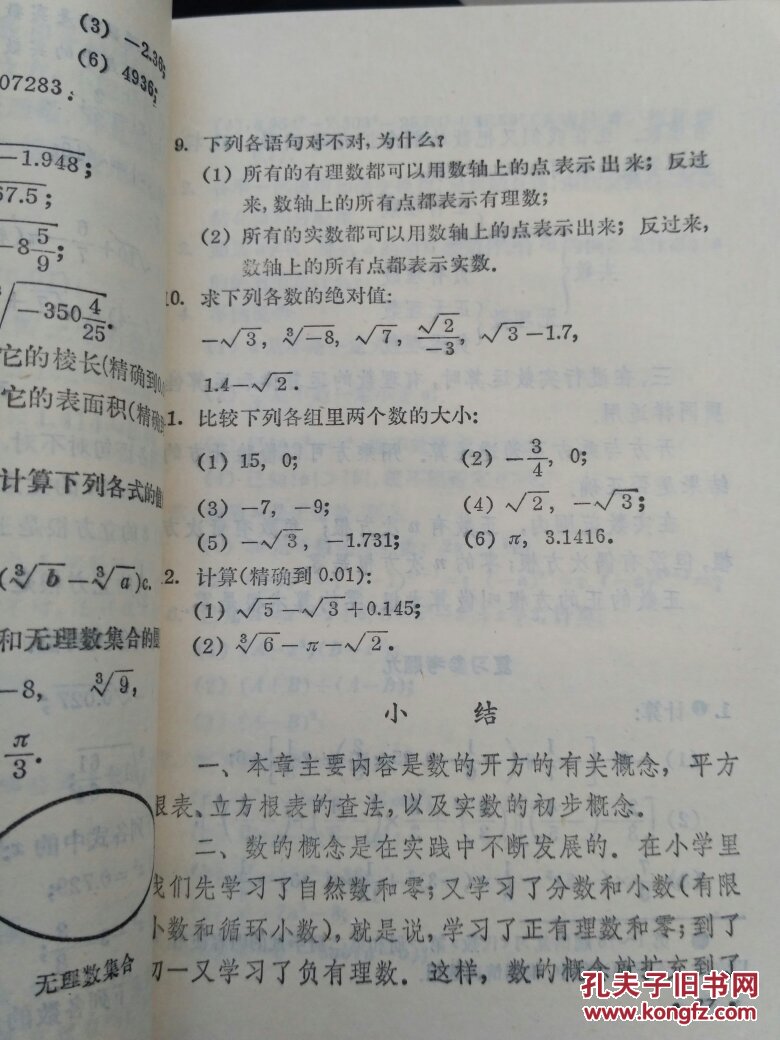 (3) −2.36
(6) 4936;
07283;
−1.948;
67.5;
−8 5/9;
∛−350 4/25.
它的棱长(精确到0.
它的表面积(精确
计算下列各式的值
(∛b−∛a)c.
和无理数集合的
−8, ∛9,
π/3.
无理数集合
9. 下列各语句对不对,为什么?
(1) 所有的有理数都可以用数轴上的点表示出来;反过
来,数轴上的所有点都表示有理数;
(2) 所有的实数都可以用数轴上的点表示出来;反过来,
数轴上的所有点都表示实数.
10. 求下列各数的绝对值:
−√3, ∛−8, √7, √2/−3, √3−1.7,
1.4−√2.
1. 比较下列各组里两个数的大小:
(1) 15, 0; (2) −3/4, 0;
(3) −7, −9; (4) √2, −√3;
(5) −√3, −1.731; (6) π, 3.1416.
2. 计算(精确到 0.01):
(1) √5−√3+0.145;
(2) ∛6−π−√2.
小 结
一、本章主要内容是数的开方的有关概念,平方
根表、立方根表的查法,以及实数的初步概念.
二、数的概念是在实践中不断发展的. 在小学里
我们先学习了自然数和零;又学习了分数和小数(有限
小数和循环小数),就是说,学习了正有理数和零;到了
初一又学习了负有理数. 这样,数的概念就扩充到了
孔夫子旧书网
KONGFZ.COM